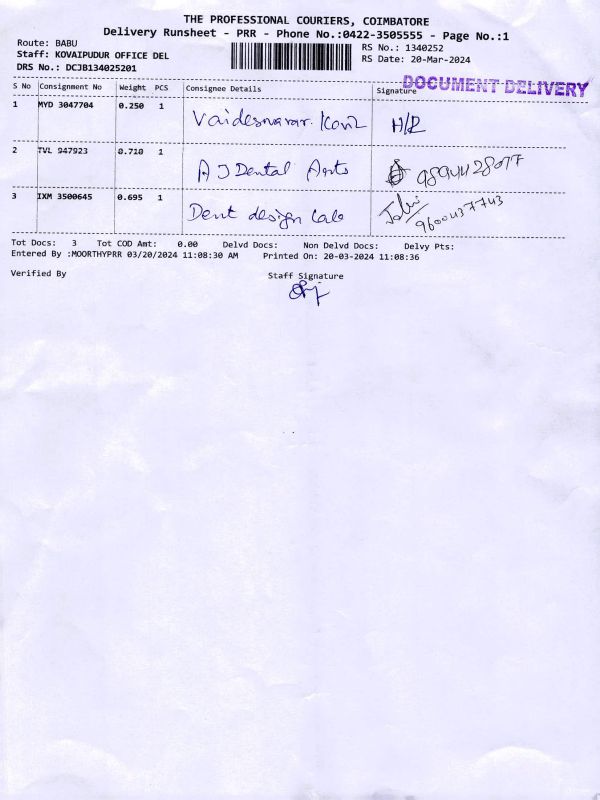 THE PROFESSIONAL COURIERS, COIMBATORE
Delivery Runsheet - PRR - Phone No.:0422-3505555 - Page No.:1
Route: BABU
Staff: KOVAIPUDUR OFFICE DEL
DRS No.: DCJB134025201
RS No.: 1340252
RS Date: 20-Mar-2024
DOCUMENT DELIVERY
S No Consignment No Weight PCS Consignee Details Signature
1 MYD 3047704 0.250 1 H/R
2 TVL 947923 0.710 1 A J Dental Arts
3 IXM 3500645 0.695 1 Dent design Lab 9600437743
Tot Docs: 3 Tot COD Amt: 0.00 Delvd Docs: Non Delvd Docs: Delvy Pts:
Entered By :MOORTHYPRR 03/20/2024 11:08:30 AM Printed On: 20-03-2024 11:08:36
Verified By Staff Signature